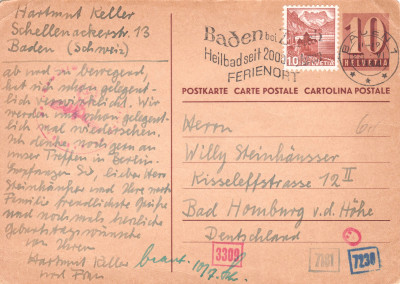 Hartmut Keller
Schellenackerstr. 13
Baden (Schweiz)
ab und zu
hat sich schon gelegent-
lich verwirklicht. Wir
werden mal gelegent-
lich mal
Ich denke noch gern an
unser Treffen in Berlin.
Empfangen Sie, lieber Herr
Steinhäusser und Ihre werte
Familie freundlichste Grüße
und nochmals herzliche
Geburtstagswünsche
von Ihrem
Hartmut Keller
und Frau
beant.
Baden bei Zürich
Heilbad seit 2000
FERIENORT
10
HELVETIA
BADEN 1
10
HELVETIA
POSTKARTE CARTE POSTALE CARTOLINA POSTALE
Herrn
Willy Steinhäusser
Kisseleffstrasse 12 II
Bad Homburg v.d. Höhe
Deutschland
3309
7101
7230